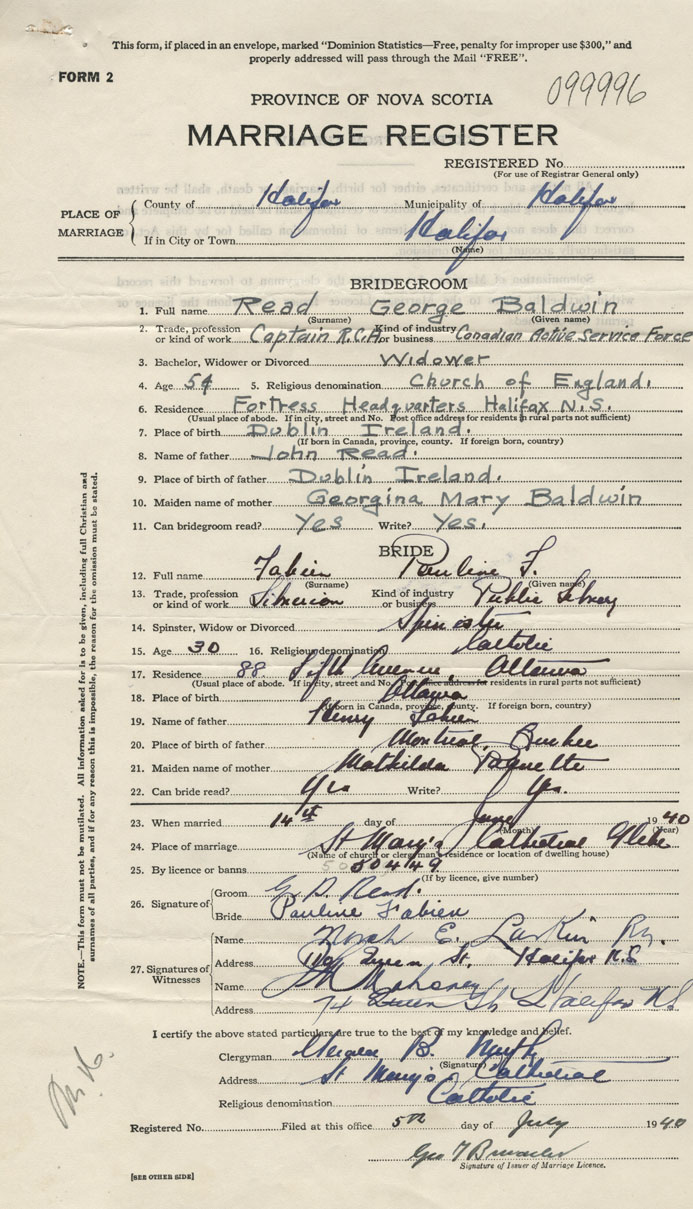 This form, if placed in an envelope, marked "Dominion Statistics—Free, penalty for improper use $300," and
properly addressed will pass through the Mail "FREE".
FORM 2
099996
PROVINCE OF NOVA SCOTIA
MARRIAGE REGISTER
REGISTERED No.
(For use of Registrar General only)
PLACE OF MARRIAGE
County of Halifax Municipality of Halifax
If in City or Town Halifax
(Name)
BRIDEGROOM
1. Full name Read George Baldwin
(Surname) (Given name)
2. Trade, profession or kind of work Captain R.C.A. Kind of industry or business Canadian Active Service Force
3. Bachelor, Widower or Divorced Widower
4. Age 54 5. Religious denomination Church of England.
6. Residence Fortress Headquarters Halifax N.S.
(Usual place of abode. If in city, street and No. Post office address for residents in rural parts not sufficient)
7. Place of birth Dublin Ireland.
(If born in Canada, province, county. If foreign born, country)
8. Name of father John Read.
9. Place of birth of father Dublin Ireland.
10. Maiden name of mother Georgina Mary Baldwin
11. Can bridegroom read? Yes Write? Yes.
BRIDE
12. Full name Fabien Pauline F.
(Surname) (Given name)
13. Trade, profession or kind of work Librarian Kind of industry or business Public Library
14. Spinster, Widow or Divorced Spinster
15. Age 30 16. Religious denomination Catholic
17. Residence 88 Fifth Avenue, Ottawa
(Usual place of abode. If in city, street and No. Post office address for residents in rural parts not sufficient)
18. Place of birth Ottawa
(If born in Canada, province, county. If foreign born, country)
19. Name of father Henry Fabien
20. Place of birth of father Montreal, Quebec
21. Maiden name of mother Mathilda Paquette
22. Can bride read? Yes Write? Yes.
23. When married 14th day of June 1940
(Month) (Year)
24. Place of marriage St Mary's Cathedral Glebe
(Name of church or clergyman's residence or location of dwelling house)
25. By licence or banns 50449
(If by licence, give number)
26. Signature of
Groom G. B. Read.
Bride Pauline Fabien
27. Signatures of Witnesses
Name Norah E. Larkin Rn.
Address Queen St. Halifax N.S
Name Mahoney
Address 74 Queen St Halifax NS
NOTE.—This form must not be mutilated. All information asked for is to be given, including full Christian and
surnames of all parties, and if for any reason this is impossible, the reason for the omission must be stated.
I certify the above stated particulars are true to the best of my knowledge and belief.
Clergyman B.
(Signature)
Address St Mary's Cathedral
Religious denomination Catholic
Registered No. Filed at this office 5th day of July 1940
Geo
Signature of Issuer of Marriage Licence.
[SEE OTHER SIDE]